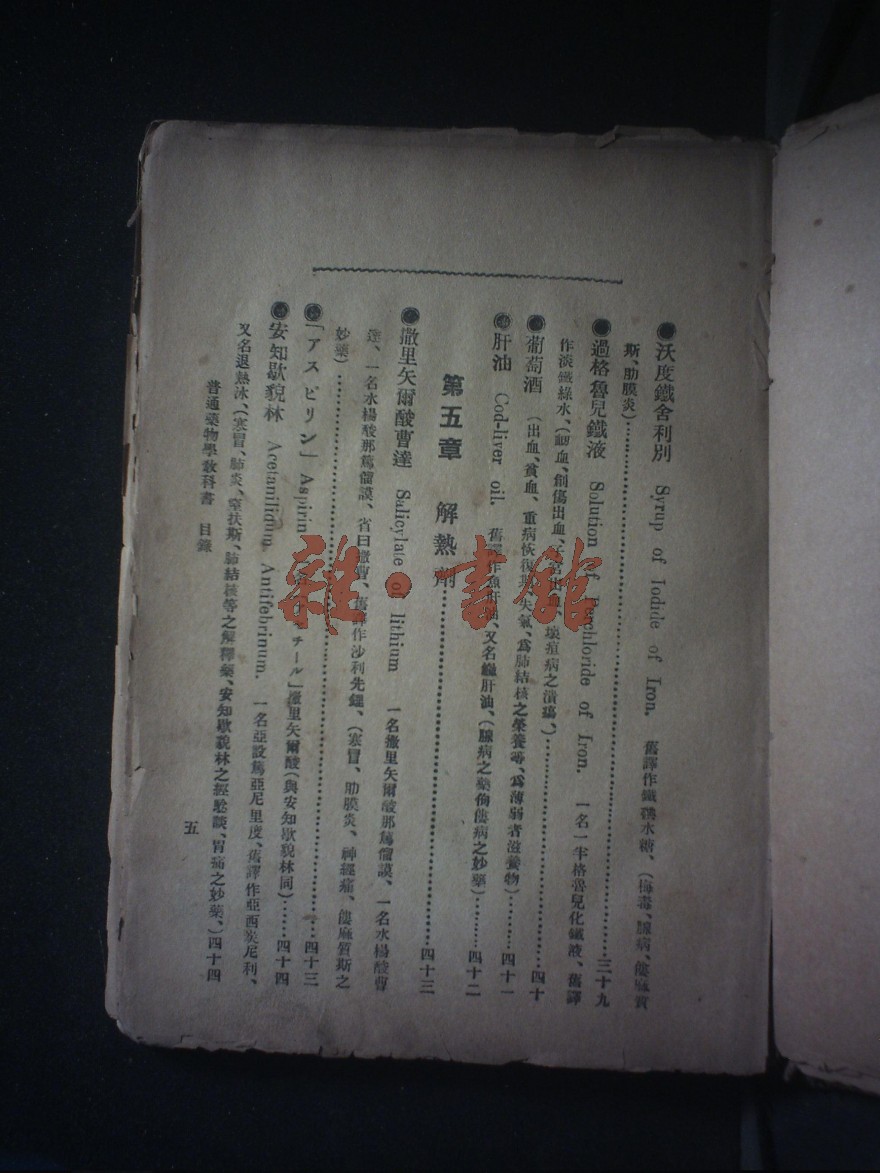 ●沃度鐵舍利別 Syrup of Iodide of Iron. 舊譯作鐵碘水糖、(梅毒、腺病、僂麻質
斯、肋膜炎)…………三十九
●過格魯兒鐵液 Solution of Perchloride of Iron. 一名一半格魯兒化鐵液、舊譯
作淡鐵綠水、(衂血、創傷出血、子宮出血、壞疽病之潰瘍、)…………四十
●葡萄酒 (出血、貧血、重病恢復期、失氣、爲肺結核之榮養品、爲薄弱者滋養物)……四十一
●肝油 Cod-liver oil. 舊譯作魚肝油、又名鱉肝油、(腺病之藥佝僂病之妙藥)……四十二
第五章 解熱劑…………四十三
●撒里矢爾酸曹達 Salicylate of lithium 一名撒里矢爾酸那篤僧謨、一名水楊酸曹
達、一名水楊酸那篤僧謨、省曰撒曹、舊譯作沙利先鋰、(寒冒、肋膜炎、神經痛、僂麻質斯之
妙藥)…………四十三
●「アスピリン」 Aspirin チール」撒里矢爾酸(與安知歇貌林同)……四十四
●安知歇貌林 Acetanilidum Antifebrinum. 一名亞設篤亞尼里度、舊譯作亞西炭尼利、
又名退熱冰、(寒冒、肺炎、窒扶斯、肺結核等之解釋藥、安知歇貌林之經驗談、胃痛之妙藥、)四十四
普通藥物學敎科書 目錄
五
雜·書館